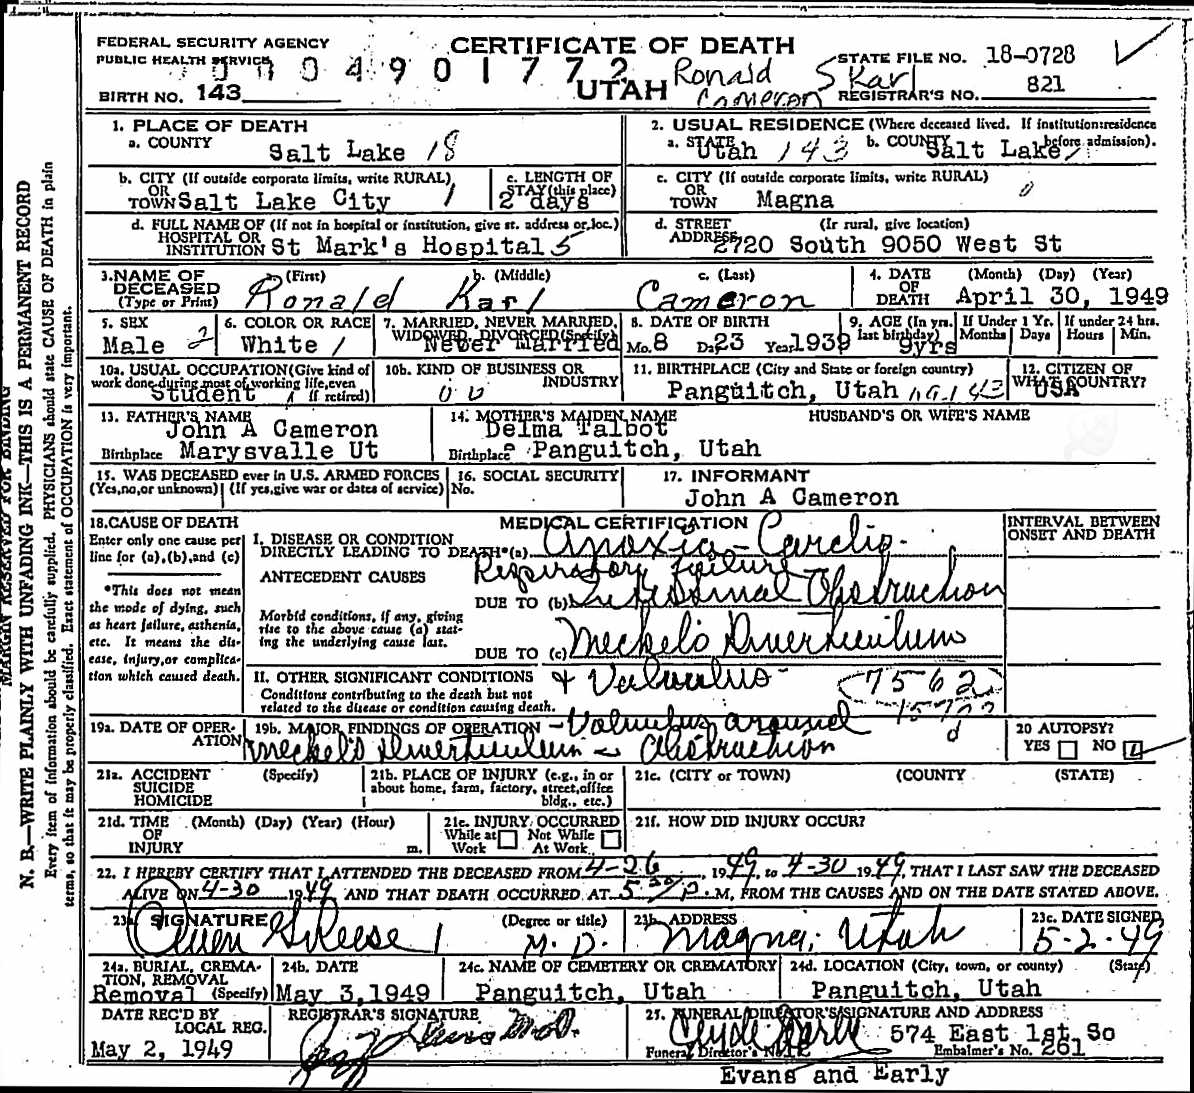 FEDERAL SECURITY AGENCY
PUBLIC HEALTH SERVICE
CERTIFICATE OF DEATH
UTAH
0004901772
Ronald Karl
Cameron
STATE FILE NO. 18-0728
BIRTH NO. 143
REGISTRAR'S NO. 821
1. PLACE OF DEATH
a. COUNTY
Salt Lake 18
2. USUAL RESIDENCE (Where deceased lived. If institution: residence before admission).
a. STATE Utah 143 b. COUNTY Salt Lake
b. CITY (If outside corporate limits, write RURAL)
OR
TOWN Salt Lake City
c. LENGTH OF
STAY (this place)
2 days
c. CITY (If outside corporate limits, write RURAL)
OR
TOWN Magna
d. FULL NAME OF (If not in hospital or institution, give st. address or loc.)
HOSPITAL OR
INSTITUTION St Mark's Hospital 5
d. STREET (If rural, give location)
ADDRESS 2720 South 9050 West St
3. NAME OF DECEASED
(Type or Print)
(First) b. (Middle) c. (Last)
Ronald Karl Cameron
4. DATE OF DEATH (Month) (Day) (Year)
April 30, 1949
5. SEX
Male 2
6. COLOR OR RACE
White 1
7. MARRIED, NEVER MARRIED,
WIDOWED, DIVORCED (Specify)
Never Married
8. DATE OF BIRTH
Mo. 8 Da. 23 Year 1939
9. AGE (In yrs. last birthday)
9yrs
If Under 1 Yr.
Months Days
If under 24 hrs.
Hours Min.
10a. USUAL OCCUPATION (Give kind of
work done during most of working life, even
if retired)
Student
10b. KIND OF BUSINESS OR
INDUSTRY
11. BIRTHPLACE (City and State or foreign country)
Panguitch, Utah
12. CITIZEN OF
WHAT COUNTRY?
USA
13. FATHER'S NAME
John A Cameron
Birthplace Marysvalle Ut
14. MOTHER'S MAIDEN NAME
Delma Talbot
Birthplace Panguitch, Utah
HUSBAND'S OR WIFE'S NAME
15. WAS DECEASED ever in U.S. ARMED FORCES
(Yes, no, or unknown) (If yes, give war or dates of service)
16. SOCIAL SECURITY
No.
17. INFORMANT
John A Cameron
18. CAUSE OF DEATH
Enter only one cause per
line for (a), (b), and (c)
*This does not mean
the mode of dying, such
as heart failure, asthenia,
etc. It means the dis-
ease, injury, or complica-
tion which caused death.
MEDICAL CERTIFICATION
INTERVAL BETWEEN
ONSET AND DEATH
I. DISEASE OR CONDITION
DIRECTLY LEADING TO DEATH* (a) Anoxia - Cardio-
Respiratory failure
ANTECEDENT CAUSES
DUE TO (b) Intestinal Obstruction
Morbid conditions, if any, giving
rise to the above cause (a) stat-
ing the underlying cause last.
DUE TO (c) Meckel's Diverticulum
II. OTHER SIGNIFICANT CONDITIONS
Conditions contributing to the death but not
related to the disease or condition causing death.
& Volvulus
7562
19a. DATE OF OPER-
ATION
19b. MAJOR FINDINGS OF OPERATION - Volvulus around
Meckel's Diverticulum & Obstruction
20 AUTOPSY?
YES NO
21a. ACCIDENT
SUICIDE
HOMICIDE
(Specify)
21b. PLACE OF INJURY (e.g., in or
about home, farm, factory, street, office
bldg., etc.)
21c. (CITY or TOWN) (COUNTY) (STATE)
21d. TIME (Month) (Day) (Year) (Hour)
OF
INJURY m.
21e. INJURY OCCURRED
While at Work
Not While At Work
21f. HOW DID INJURY OCCUR?
22. I HEREBY CERTIFY THAT I ATTENDED THE DECEASED FROM 4-26, 1949, to 4-30 1949, THAT I LAST SAW THE DECEASED
ALIVE ON 4-30 1949 AND THAT DEATH OCCURRED AT 5 30/P. M, FROM THE CAUSES AND ON THE DATE STATED ABOVE.
23a SIGNATURE (Degree or title)
M.D.
23b. ADDRESS
Magna, Utah
23c. DATE SIGNED
5-2-49
24a. BURIAL, CREMA-
TION, REMOVAL
Removal (Specify)
24b. DATE
May 3, 1949
24c. NAME OF CEMETERY OR CREMATORY
Panguitch, Utah
24d. LOCATION (City, town, or county) (State)
Panguitch, Utah
DATE REC'D BY
LOCAL REG.
May 2, 1949
REGISTRAR'S SIGNATURE
25. FUNERAL DIRECTOR'S SIGNATURE AND ADDRESS
574 East 1st So
Funeral Director's No. Embalmer's No. 261
Evans and Early
MARGIN RESERVED FOR BINDING
N. B.—WRITE PLAINLY WITH UNFADING INK—THIS IS A PERMANENT RECORD
Every item of information should be carefully supplied. PHYSICIANS should state CAUSE OF DEATH in plain
terms, so that it may be properly classified. Exact statement of OCCUPATION is very important.